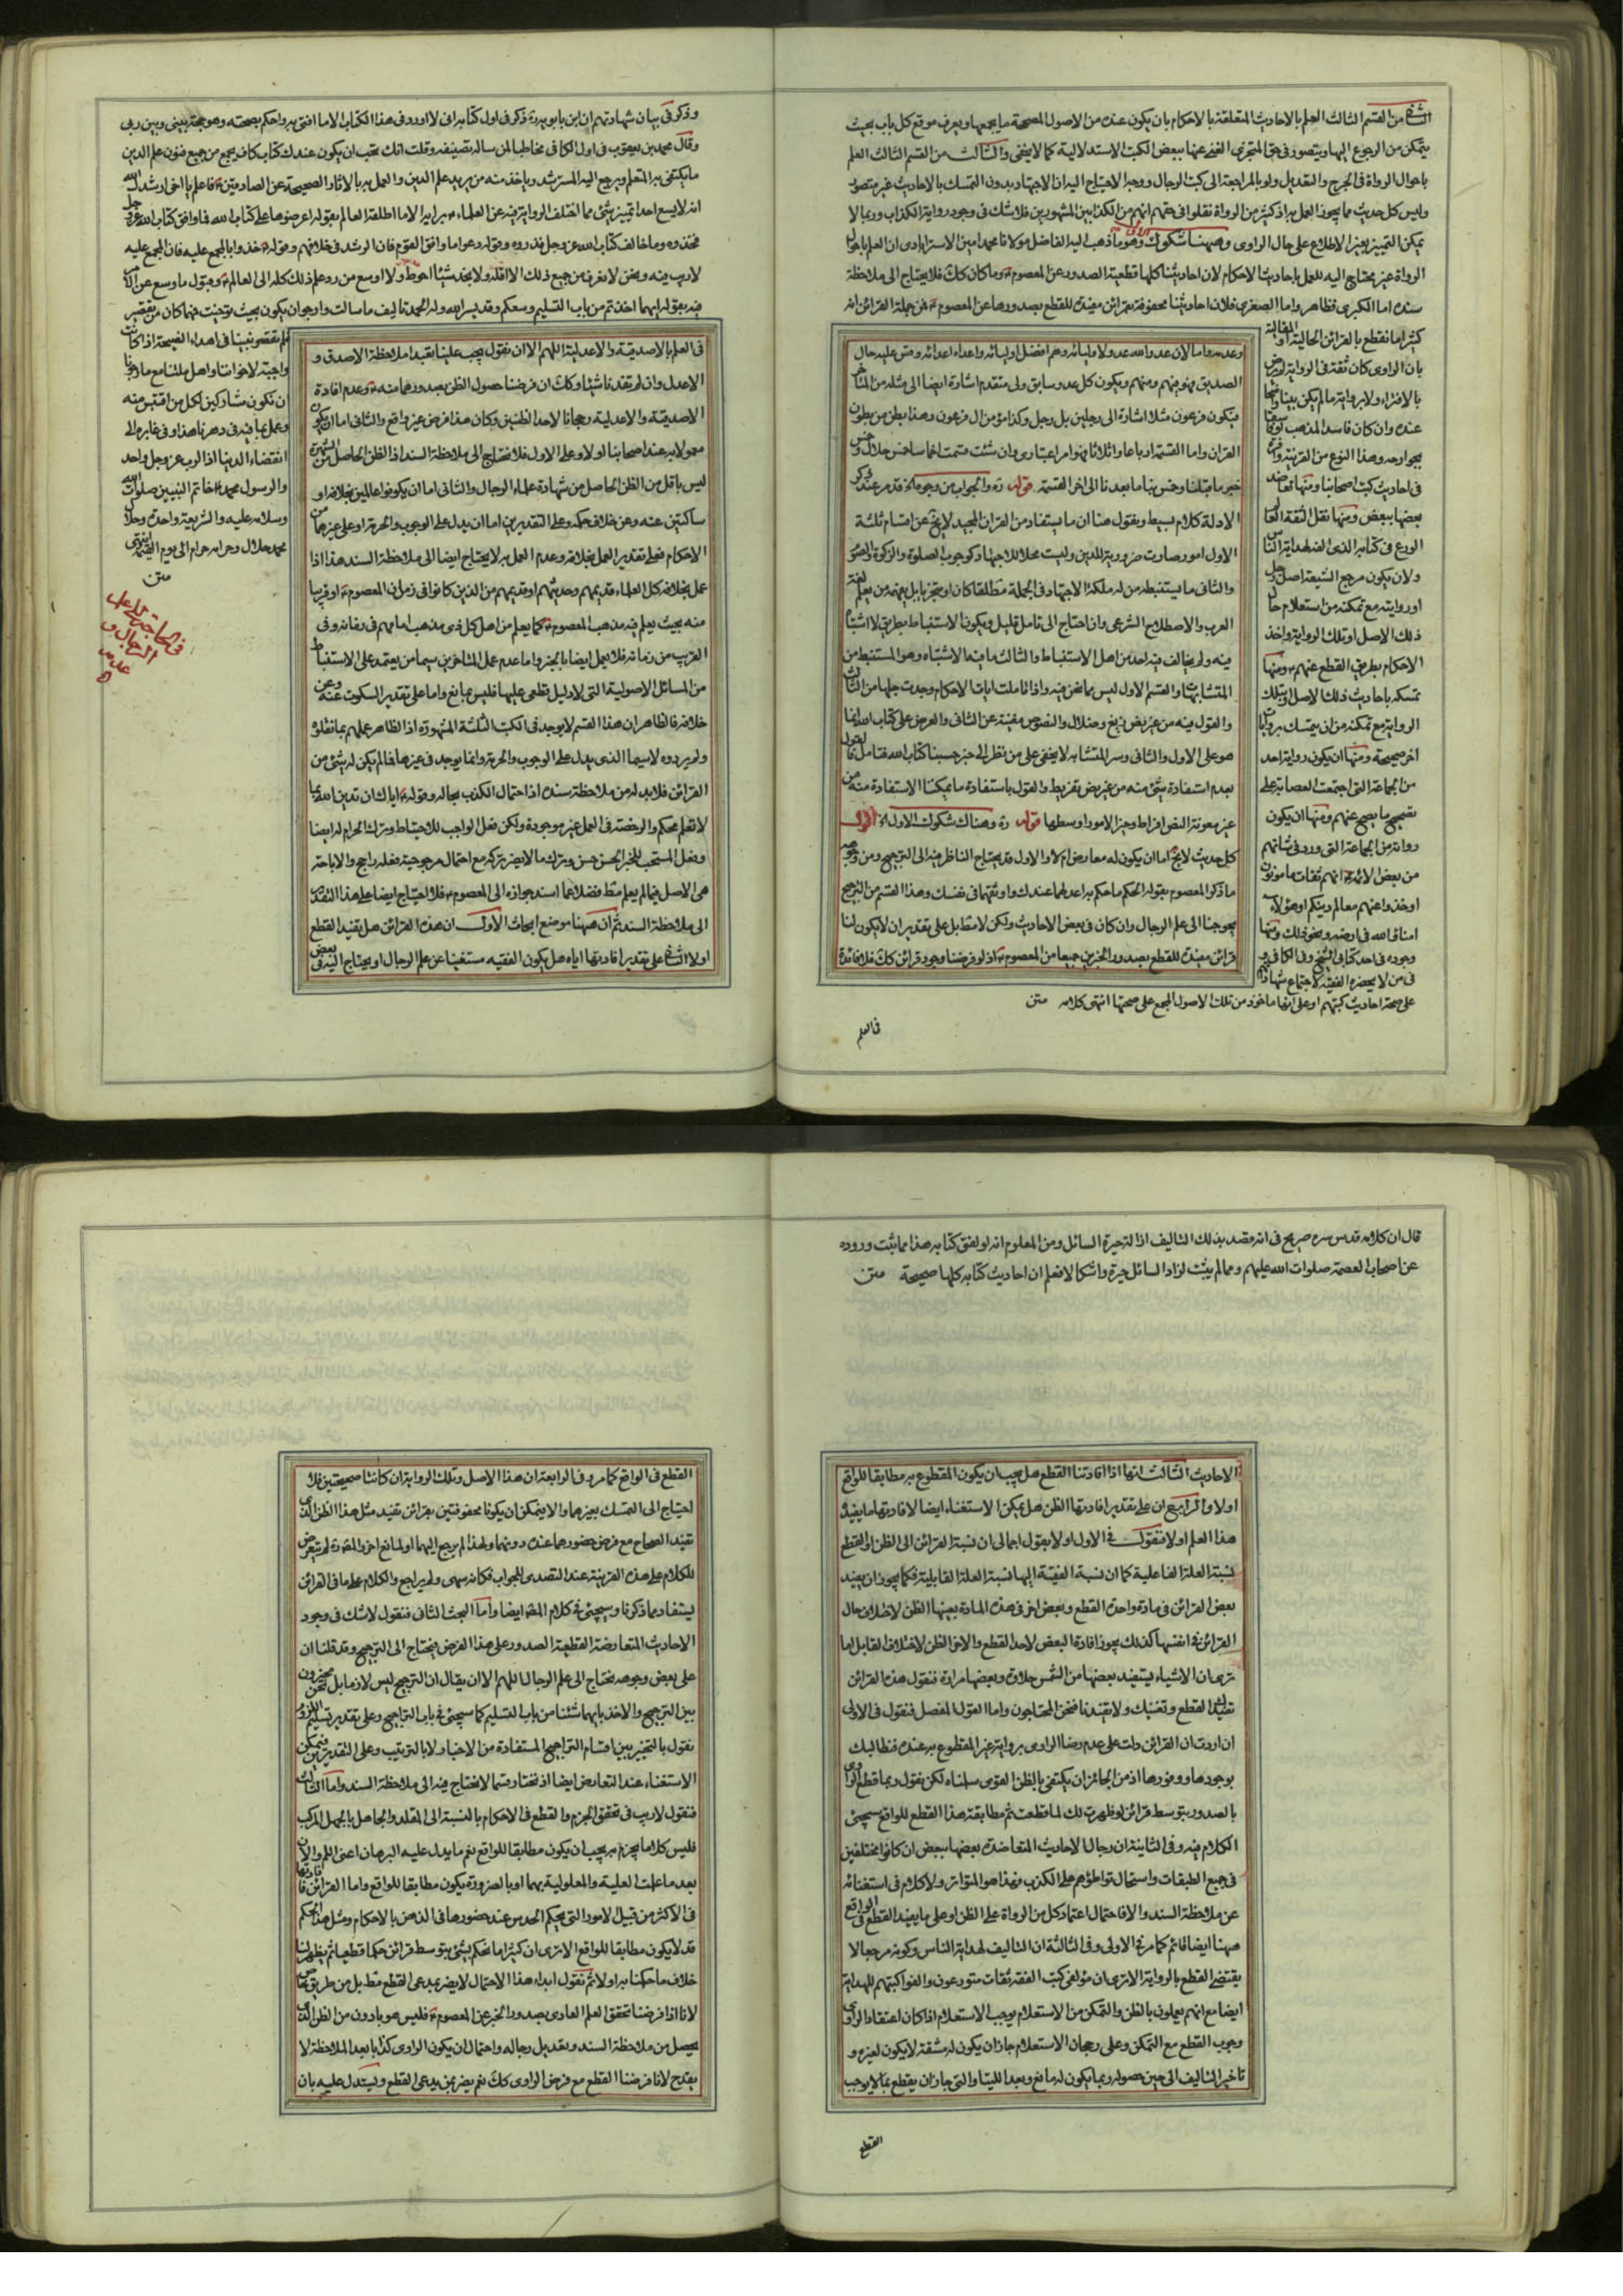 الشيخ من القسم الثالث العلم بالاحاديث المتعلقة بالاحكام بان يكون عنده من الاصول المصححة ما يجمعها ويعرف موقع كل باب بحيث
يتمكن من الرجوع اليها ويتصور في حق المتجزى الغنى عنها ببعض الكتب الاستدلالية كما لا يخفى والثالث من القسم الثالث العلم
باحوال الرواة في الجرح والتعديل ولو بالمراجعة الى كتب الرجال ووجه الاحتياج اليه ان الاجتهاد بدون التمسك بالاحاديث غير متصور
وليس كل حديث مما يجوز العمل به اذ كثير من الرواة نقلوا في حقهم انهم من الكذابين المشهورين فلا شك في وجود رواية الكذاب وربما لا
يمكن التمييز بغير الاطلاع على حال الراوى وههنا شكوك وهو ما ذهب اليه الفاضل مولانا محمد امين الاسترابادى ان العلم باحوال
الرواة غير محتاج اليه للعمل باحاديث الاحكام لان احاديثنا كلها قطعية الصدور عن المعصوم وما كان كك فلا يحتاج الى ملاحظة
سنده اما الكبرى فظاهر واما الصغرى فلان احاديثنا محفوفة بقرائن مفيدة للقطع بصدورها عن المعصوم فمن جملة القرائن انه
كثيرا ما نقطع بالقرائن الحالية او المقالية
بان الراوى كان ثقة في الرواية لم يرض
بالافتراء ولا برواية ما لم يكن بينا واضحا
عنده وان كان فاسد المذهب او فاسقا
بجوارحه وهذا النوع من القرينة وافرة
في احاديث كتب اصحابنا ومنها تعاضد
بعضها ببعض ومنها نقل الثقة العالم
الورع في كتابه الذى الفه لهداية الناس
ولان يكون مرجع الشيعة اصل رجل
او روايته مع تمكنه من استعلام حال
ذلك الاصل او تلك الرواية واخذ
الاحكام بطريق القطع عنهم ومنها
تمسكه باحاديث ذلك الاصل او بتلك
الرواية مع تمكنه من ان يتمسك بروايات
اخر صحيحة ومنها ان يكون رواية احد
من الجماعة التى اجتمعت العصابة على
تصحيح ما يصح عنهم ومنها ان يكون
رواته من الجماعة التى ورد في شانهم
من بعض الائمة انهم ثقات مامونون
او خذوا عنهم معالم دينكم او هؤلاء
امناء الله في ارضه ونحو ذلك ومنها
وجوده في احد كتابى الشيخ وفي الكافى و
في من لا يحضره الفقيه لاجتماع شهاداتهم
على صحة احاديث كتبهم او على انها ماخوذ من تلك الاصول المجمع على صحتها انتهى كلامه متن
وعدمه واما لان عدو الله عدو لاوليائه وهم افضل اوليائه واعداء اعدائه وقس عليه حال
الصديق فهو فيهم ومنهم ويكون كل عدو سابق ولى متقدم اشارة ايضا الى مثله من المتاخر
فيكون فرعون مثلا اشارة الى رجلين بل رجل وكذا مؤمن ال فرعون وهذا بطن من بطون
القران واما القسمة ارباعا واثلاثا فهو امر اعتبارى وان شئت قسمت اخماسا خمس حلال وخمس
خبر ما قبلنا وخمس بناء ما بعدنا الى اخر القسمة قوله ره والجواب من وجوه قد مر عند ذكر
الادلة كلام بسيط ونقول هنا ان ما يستفاد من القران المجيد لا يخ عن اقسام ثلثة
الاول امور صارت ضرورية للدين وليست محلا للاجتهاد كوجوب الصلوة والزكوة والصوم
والثانى ما يستنبطه من له ملكة الاجتهاد في الجملة مطلقا كان او متجزيا بل يفهمه من يعلم لغة
العرب والاصطلاح الشرعى وان احتاج الى تامل قليل ويكون الاستنباط بطريق لا اشتباه
فيه ولم يخالف فيه احد من اهل الاستنباط والثالث ما فيه الاشتباه وهو المستنبط من
المتشابهات والقسم الاول ليس مما نحن فيه واذا تاملت ايات الاحكام وجدت جلها من الثانى
والقول فيه من غير نص زيغ وضلال والنصوص مغنية عن الثانى والعرض على كتاب الله ايضا
هو على الاول والثانى وسر المتشابه لا يخفى على من نظر الى خبر حسبنا كتاب الله فتامل فالقول
بعدم استفادة شئ منه من غير نص تفريط والقول باستفادة ما يمكننا الاستفادة منه من
غير معونة النص افراط وخير الامور اوسطها قوله ره وهناك شكوك الاول اه اقول
كل حديث لا يخ اما ان يكون له معارض ام لا والاول قد يحتاج الناظر فيه الى الترجيح ومن وجوه
ما ذكره المعصوم بقوله الحكم ما حكم به اعدلهما عندك واوثقهما في نفسك وهذا القسم من الترجيح
يحوجنا الى علم الرجال وان كان في بعض الاحاديث ولكن لا مطبل على تقدير ان لا يكون لنا
قرائن مفيدة للقطع بصدور الخبرين جميعا من المعصوم اذ لو فرضنا وجود قرائن كك فلا فائدة
في العلم
وذكر في بيان شهادتهم ان ابن بابويه ره ذكر في اول كتابه انى لا اورد في هذا الكتاب الا ما افتى به واحكم بصحته وهو حجة بينى وبين ربى
وقال محمد بن يعقوب في اول الكافى مخاطبا لمن ساله تصنيفه وقلت انك تحب ان يكون عندك كتاب كاف يجمع من جميع فنون علم الدين
ما يكتفى به المتعلم ويرجع اليه المسترشد وياخذ منه من يريد علم الدين والعمل به بالاثار الصحيحة عن الصادقين فاعلم يا اخى ارشدك الله
انه لا يسع احدا تمييز شئ مما اختلف الرواية فيه عن العلماء برايه الا ما اطلقه العالم بقوله اعرضوها على كتاب الله فما وافق كتاب الله عز وجل
فخذوه وما خالف كتاب الله عز وجل فذروه وقوله دعوا ما وافق القوم فان الرشد في خلافهم وقوله خذوا بالمجمع عليه فان المجمع عليه
لا ريب فيه ونحن لا نعرف من جميع ذلك الا اقله ولا نجد شيئا احوط ولا اوسع من رد علم ذلك كله الى العالم وقبول ما وسع من الامر
فيه بقوله بايهما اخذتم من باب التسليم وسعكم وقد يسر الله وله الحمد تاليف ما سالت وارجو ان يكون بحيث توخيت فمهما كان من تقصير
فلم تقصر نيتنا في اهداء النصيحة اذ كانت
واجبة لاخواننا واهل ملتنا مع ما رجونا
ان نكون مشاركين لكل من اقتبس منه
وعمل بما فيه في دهرنا هذا وفي غابره الى
انقضاء الدنيا اذ الرب عز وجل واحد
والرسول محمد خاتم النبيين صلوات الله
وسلامه عليه والشريعة واحدة وحلال
محمد حلال وحرامه حرام الى يوم القيمة انتهى
متن
في الحاجة الى علم
الرجال و
عدمه
في العلم بالاصدقية والاعدلية اللهم الا ان نقول يجب علينا تعبدا ملاحظة الاصدق و
الاعدل وان لم يفدنا شيئا وكك ان فرضنا حصول الظن بصدورهما منه وعدم افادة
الاصدقية والاعدلية رجحانا لاحد الظنين وكان هذا فرض غير واقع والثانى اما ان يكون
معمولا به عند اصحابنا اولا وعلى الاول فلا نحتاج الى ملاحظة السند اذ الظن الحاصل من الشهرة
ليس باقل من الظن الحاصل من شهادة علماء الرجال والثانى اما ان يكونوا عاملين بخلافه او
ساكتين عنه وعن خلاف حكمه وعلى التقديرين اما ان يدل على الوجوب والحرمة او على غيرهما من
الاحكام فعلى تقدير العمل بخلافه وعدم العمل به لا يحتاج ايضا الى ملاحظة السند هذا اذا
عمل بخلافه كل العلماء قديمهم وحديثهم او قديمهم من الذين كانوا في زمن المعصوم او قريبا
منه بحيث يعلم فيه مذهب المعصوم كما يعلم من اهل كل ذى مذهب امامهم في زمانه وفي
القرب من زمانه فلا يعمل ايضا بالخبر واما عدم عمل المتاخرين سيما من يعتمد على الاستنباط
من المسائل الاصولية التى لا دليل قطعى عليها فليس بمانع واما على تقدير السكوت عنه وعن
خلافه فالظاهر ان هذا القسم لا يوجد في الكتب الثلثة المشهورة اذ الظاهر عملهم بما نقلوه
ولم يردوه لا سيما الذى يدل على الوجوب والحرمة وانما يوجد في غيرها فما لم يكن له شئ من
القرائن فلا بد له من ملاحظة سنده اذ احتمال الكذب بحاله وقوله اياك ان تدين الله بما
لا تعلم محكم والرخصة في العمل غير موجودة ولكن فعل الواجب للاحتياط وترك الحرام له ايضا
وفعل المستحب للخبر الحسن حسن وترك ما لا يضر تركه مع احتمال مرجوحية فعله راجح والاباحة
هى الاصل فيما لم يعلم فقط فضلا عما اسند جوازه الى المعصوم فلا احتياج ايضا على هذا التقدير
الى ملاحظة السند ثم ان ههنا موضع ابحاث الاول ان هذه القرائن هل تفيد القطع
اولا الثانى على تقدير افادتها اياه هل يكون الفقيه مستغنيا عن علم الرجال او يحتاج اليه في بعض
قال ان كلامه قدس سره صريح في انه قصد بذلك التاليف ازالة حيرة السائل ومن المعلوم انه لو لفق كتابه هذا مما ثبت وروده
عن اصحاب العصمة صلوات الله عليهم ومما لم يثبت لزاد السائل حيرة واشكالا فعلم ان احاديث كتابه كلها صحيحة متن
الاحاديث الثالث انها اذا افادتنا القطع هل يجب ان يكون المقطوع به مطابقا للواقع
اولا والرابع ان على تقدير افادتها الظن هل يمكن الاستغناء ايضا لافادتها ما يفيده
هذا العلم اولا فنقول في الاول اولا بقول اجمالى ان نسبة القرائن الى الظن او القطع
نسبة العلة الفاعلية كما ان نسبة الفقيه اليها نسبة العلة القابلية فكما يجوز ان يفيد
بعض القرائن في مادة واحدة القطع وبعض اخر في هذه المادة بعينها الظن لاختلاف حال
القرائن في انفسها كذلك يجوز افادة البعض لاحد القطع والاخر الظن لاختلاف القابل اما
ترى ان الاشياء يستفيد بعضها من الشمس حلاوة وبعضها مرارة فنقول هذه القرائن
تفيدك القطع وتغنيك ولا تفيدنا فنحن المحتاجون واما القول المفصل فنقول في الاولى
ان اردت ان القرائن دلت على عدم رضا الراوى برواية غير المقطوع به عنده فنطالبك
بوجودها ووفورها اذ من الجائز ان يكتفى بالظن القوى سلمناه لكن نقول ربما قطع الراوى
بالصدور بتوسط قرائن لو ظهرت لك لما قطعت ثم مطابقة هذا القطع للواقع سيجئ
الكلام فيه وفي الثانية ان رجال الاحاديث المتعاضدة بعضها ببعض ان كانوا مختلفين
في جميع الطبقات واستحال تواطؤهم على الكذب فهذا هو المتواتر ولا كلام في استغنائه
عن ملاحظة السند والا فاحتمال اعتماد كل من الرواة على الظن او على ما يفيد القطع في الواقع
ههنا ايضا قائم كما مر في الاولى وفي الثالثة ان التاليف لهداية الناس وكونه مرجعا لا
يقتضى القطع بالرواية الا ترى ان مؤلفى كتب الفقه ثقات متورعون والفوا كتبهم للهداية
ايضا مع انهم يعملون بالظن والتمكن من الاستعلام يوجب الاستعلام اذا كان اعتقاد الراوى
وجوب القطع مع التمكن وعلى رجحان الاستعلام جاز ان يكون له مشقة لا يكون لغيره و
تاخير التاليف الى حين حصوله ربما يكون له مانع وبعد اللتيا والتى جاز ان يقطع بما لا يوجب
القطع
القطع في الواقع كما مر وفي الرابعة ان هذا الاصل وتلك الرواية ان كانتا صحيحتين فلا
احتياج الى التمسك بغيرهما والا يمكن ان يكونا محفوفتين بقرائن تفيد مثل هذا الظن الذى
تفيد الصحاح مع فرض حضورهما عنده دونهما ولهذا لم يرجع اليهما او لمانع اخر والمصنف ره لم يتعرض
للكلام على هذه القرينة عند التصدى للجواب فكانه سهى ولم يراجع والكلام على ما في القرائن
يستفاد بما ذكرنا وسيجئ في كلام المصنف ايضا واما البحث الثانى فنقول لا شك في وجود
الاحاديث المتعارضة القطعية الصدور على هذا الفرض فيحتاج الى الترجيح وقد قلنا ان
على بعض وجوهه نحتاج الى علم الرجال اللهم الا ان يقال ان الترجيح ليس لازما بل نحن مخيرون
بين الترجيح والاخذ بايهما شئنا من باب التسليم كما سيجئ في باب التراجيح وعلى تقدير تسليم اللزوم
نقول بالتخيير بين اقسام التراجيح المستفادة من الاخبار لا بالترتيب وعلى التقديرين فيمكن
الاستغناء عند التعارض ايضا اذ نختار قسما لا نحتاج فيه الى ملاحظة السند واما الثالث
فنقول لا ريب في تحقق الجزم والقطع في الاحكام بالنسبة الى المقلد والجاهل بالجهل المركب
فليس كلما يجزم به يجب ان يكون مطابقا للواقع نعم ما يدل عليه البرهان اعنى اللم والان
بعد ما علمت العلية والمعلولية بهما او بالضرورة يكون مطابقا للواقع واما القرائن فافادتها
في الاكثر من قبيل الامور التى يحكم الحدس عند حضورها في الذهن بالاحكام ومثل هذا الحكم
قد لا يكون مطابقا للواقع الا ترى ان كثيرا ما نحكم بشئ بتوسط قرائن حكما قطعيا ثم يظهر لنا
خلاف ما حكمنا به اولا ثم نقول ابداء هذا الاحتمال لا يضر بمدعى القطع فقط بل من طريق خاص
لانا اذا فرضنا تحقق العلم العادى بصدور الخبر عن المعصوم فليس هو بادون من الظن الذى
يحصل من ملاحظة السند وتعديل رجاله واحتمال ان يكون الراوى كذابا بعد الملاحظة لا
يقدح لانا فرضنا القطع مع فرض الراوى كك نعم يضر بمن يدعى القطع ويستدل عليه بان